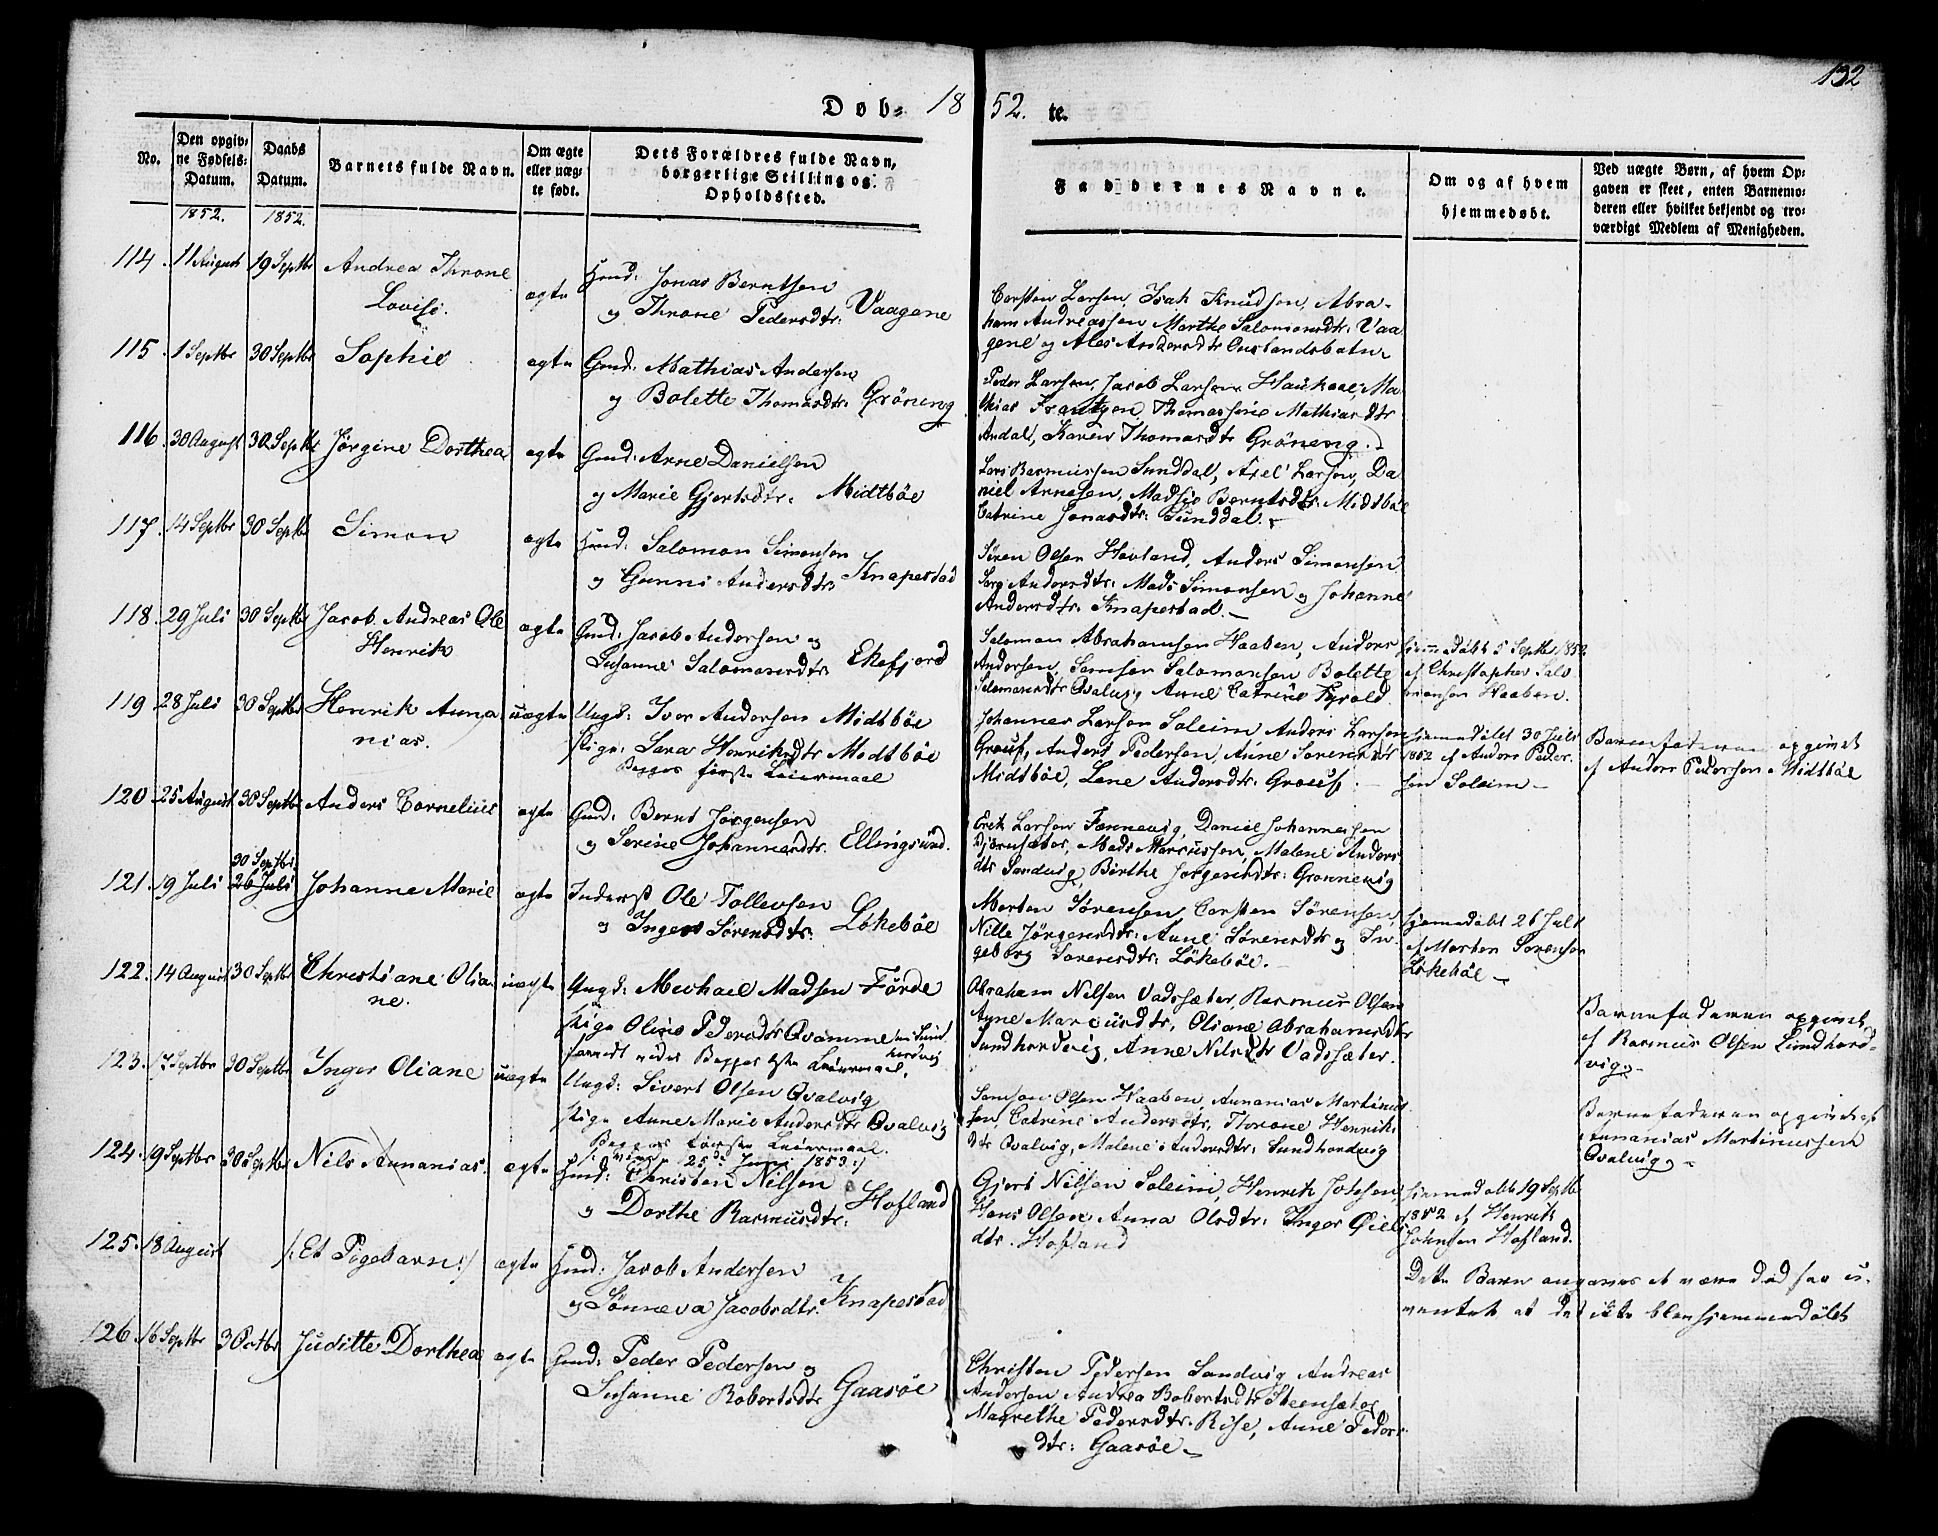 132
Døb- 18 52. te.
No.
Den opgivne Fødsels-Datum.
Daabs Datum.
Barnets fulde Navn.
Om ægte eller uægte født.
Dets Forældres fulde Navn, borgerlige Stilling og Opholdssted.
Faddernes Navne.
Om og af hvem hjemmedøbt.
Ved uægte Børn, af hvem Opgaven er skeet, enten Barnemoderen eller hvilket bekjendt og troværdigt Medlem af Menigheden.
1852. 1852.
114. 11 August 19 Septbr Andrea Throne
Lovise.
ægte
Gmd: Jonas Berntsen
og Throne Pedersdtr: Vaagene
Corsten Larsen, Isak Knudsen, Abra-
ham Andreassen Marthe Salomonsdtr: Vaa
gene og Ales Andersdtr
115. 1 Septbr 30 Septbr Sophie
ægte
Gmd: Mathias Andersen
og Bolette Thomasdtr: Gröneng
Peder Larsen, Jacob Larsen Haukaae, Ma
thias Frantzen, Thomassine Mathiasdtr
Andal, Karen Thomasdtr Gröneng.
116. 30 August 30 Septbr Jörgine Dorthea
ægte
Gmd: Arne Danielsen
og Marie Gjertsdtr: Midtböe
Lars Rasmussen Sunddal, Axel Larsen, Da
niel Arnesen, Madsie Berntsdtr: Midtböe
Catrine Jonasdtr: Sunddal.
117. 14 Septbr 30 Septbr Simon
ægte
Gmd: Salomon Simonsen
og Gunni Andersdtr Knapestad
Sören Olsen Hovland, Anders Simonsen
Andersdtr: Mads Simonsen og Johanne
Andersdtr: Knapestad.
118. 29 Juli 30 Septbr Jacob Andreas Ole
Henrik
ægte
Gmd: Jacob Andersen og
Susanne Salomonsdtr: Ekefjord
Salomon Abrahamsen Haaben, Anders
Andersen, Samson Salomonsen Bolette
Salomonsdtr Qvalvig Anne Catrine
Hjemmedöbt 5 Septbr 1852
af Christopher Salo
monsen Haaben.
119. 28 Juli 30 Septbr Henrik Anna
nias.
uægte
Ungk: Iver Andersen Midtböe
Pige: Sara Henriksdtr Midtböe
Begges første Leiermaal
Johannes Larsen Soleim Anders Larsen
Groeuf, Anders Pedersen, Anne Sorensdtr
Midtböe, Lene Andersdtr: Groeuf.
Hjemmedöbt 30 Juli
1852 af Anders Peder-
sen Soleim
Barnefaderen opgivet
af Anders Pedersen Midtböe
120. 25 August 30 Septbr Anders Cornelius
ægte
Gmd: Bernt Jörgensen
og Serine Johannesdtr. Ellingsund.
Erik Larsen Fennevig, Daniel Johannessen
Björnsæter, Mads Marcussen, Malene Anders
dtr Sandvig, Birthe Jörgensdtr: Grönnevig
30 Septbr
121. 19 Juli 26 Juli Johanne Marie
ægte
Inderst Ole Tollevsen
og Inger Sörensdtr: Lökeböe
Morten Sörensen, Corsten Sörensen,
Nille Jörgensdtr: Anne Sörensdtr og In-
geborg Sorensdtr: Lökeböe.
Hjemmedöbt 26 Juli
af Morten Sorensen
Lökeböe
122. 14 August 30 Septbr Christiane Olia
ne.
uægte
Ungk: Michael Madsen Förde
Pige Oline Pedersdtr Qvamme
Begges 1ste Leiermaal.
Abraham Nilsen Vadsæter, Rasmus Olsen
Ayne Marcusdtr, Oliane Abrahamsdtr
Sundhordvig, Anne Nilsdtr Vadsæter.
Barnefaderen opgivet
af Rasmus Olsen Sundhord-
vig.
123. 17 Septbr 30 Septbr Inger Oliane
uægte
Ungk: Sivert Olsen Qvalvig
Pige Anne Marie Andersdtr Qvalvig
Begges første Leiermaal.
25de Juni 1853
Samson Olsen Haaben, Annanias Martinus
sen, Catrine Andersdtr, Throne Henriks
dtr Qvalvig, Malene Andersdtr: Sundhordvig
Barnefaderen opgivet af
Annanias Martinussen
Qvalvig
124. 19 Septbr 30 Septbr Nils Annanias.
ægte
Gmd: Christen Nilsen
og Dorthe Rasmusdtr: Hofland
Gjert Nilsen Soleim, Henrik Johnsen,
Hans Olsen Anna Olsdtr: Inger Öiels
dtr. Hofland
Hjemmedöbt 19 Septbr
1852 af Henrik
Johnsen Hofland.
125. 18 August /: Et Pigebarn :/
ægte
Gmd: Jacob Andersen
og Sönneva Jacobsdtr: Knapestad
Dette Barn angaves at være död saa u-
ventet at det ikke blev hjemmedöbt
126. 16 Septbr 3 Octbr Juditte Dorthea
ægte
Gmd: Peder Pedersen og
Susanne Robertsdtr Gaasöe
Christen Pedersen Sandvig Andreas
Andersen Andrea Robertsdtr Steensæter
Marethe Pedersdtr: Rise, Anne Peders
dtr: Gaasöe